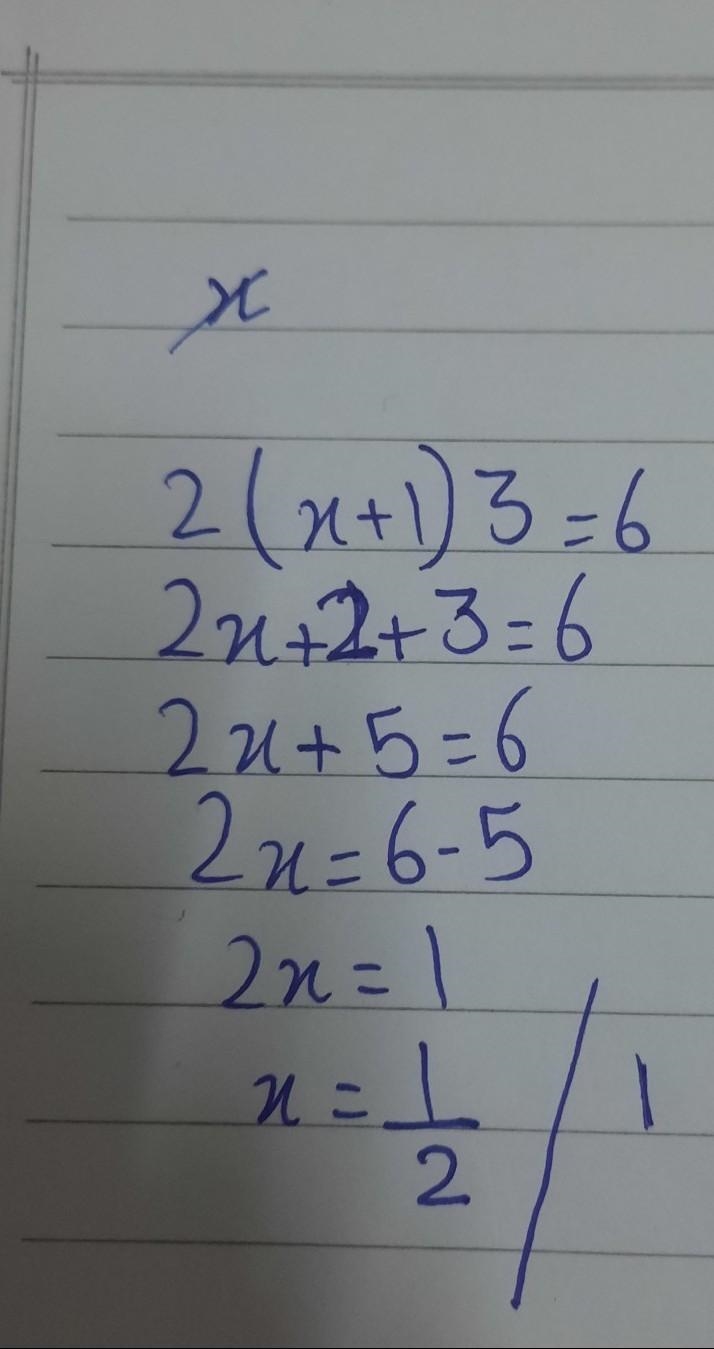 x
2(x+1)3=6
2x+2+3=6
2x+5=6
2x=6-5
2x=1
x=1/2 / 1